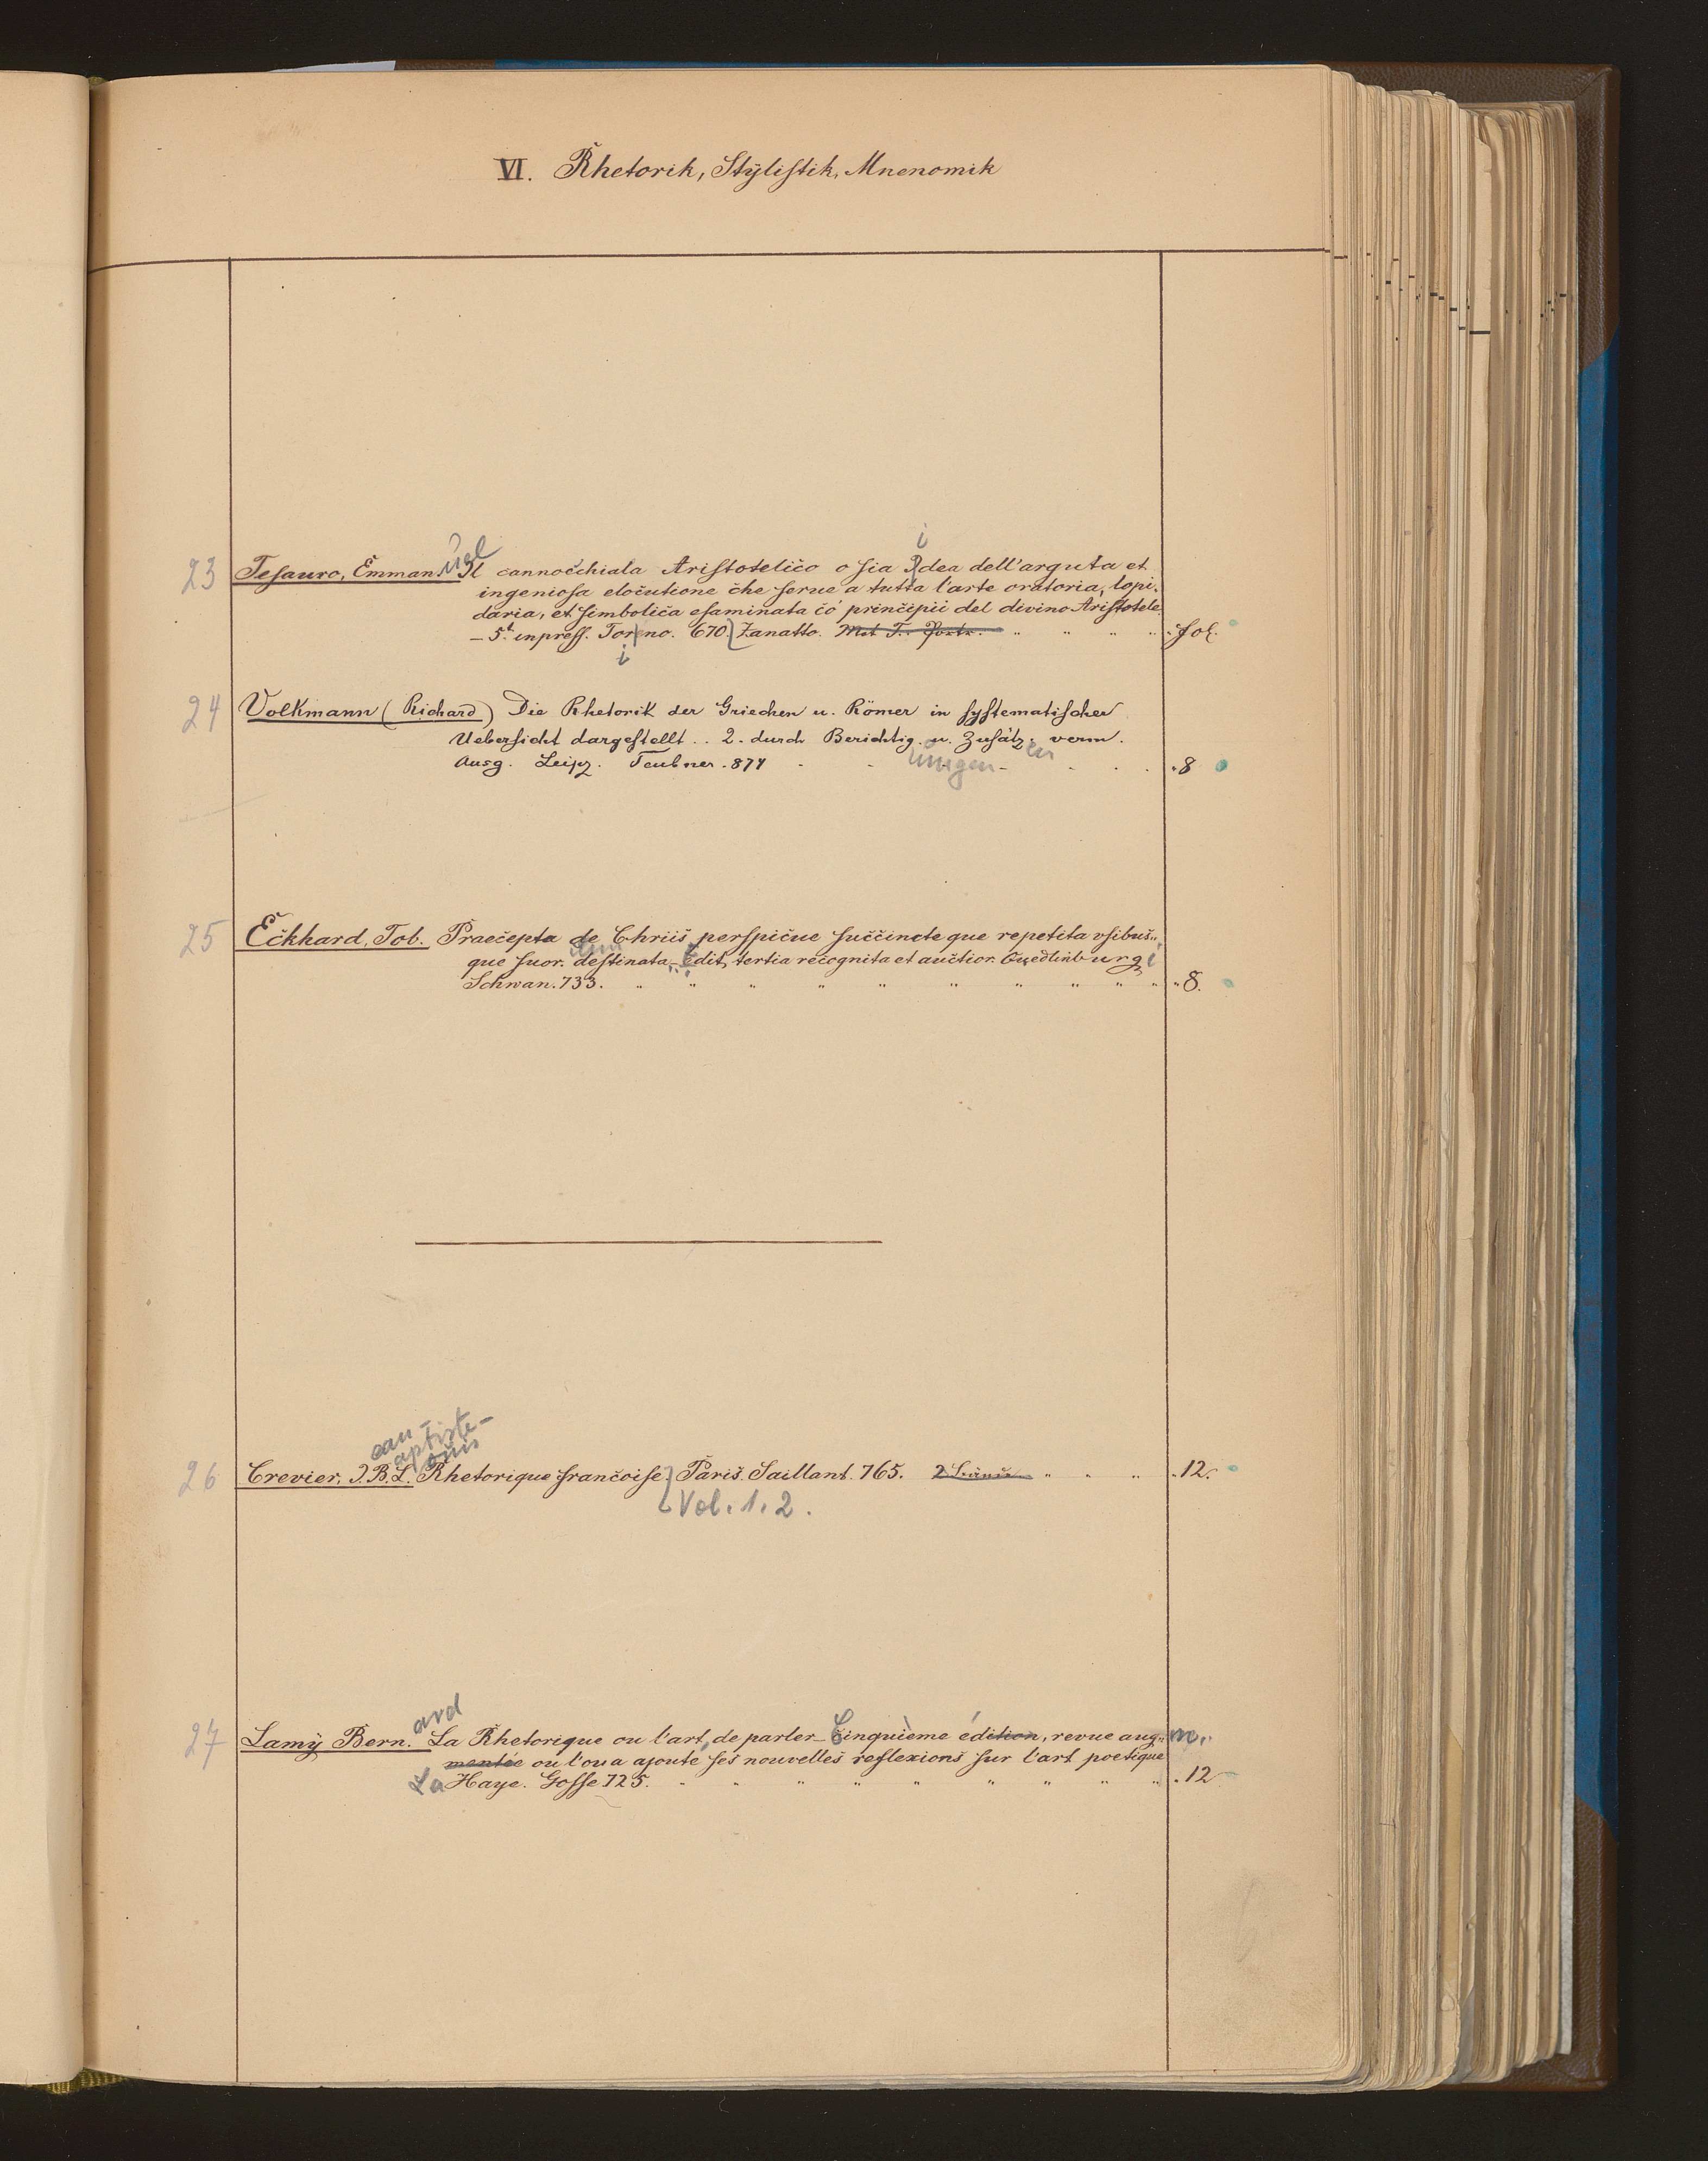 VI. Rhetorik, Stÿlistik, Mnenomik
uel
i
23 Tesauro, Emman. Il cannocchiala Aristotelico o sia Idea dell'arguta et
ingeniosa elocutione che serue a tutta l'arte oratoria, lopi-
daria, et simbolica esaminata co' principii del divino Aristotele
– 5t inpress. Torno. 670. Zanatto. fol.
i
24 Volkmann (Richard) Die Rhetorik der Griechen u. Römer in systematischer
Uebersicht dargestellt .. 2. durch Berichtig. u. Zusätz. verm.
ungen en
Ausg. Leipz. Teubner. 874 8
25 Eckhard, Tob. Praecepta de Chriis perspicue succincte que repetita vsibus
que suor. destinata – Edit. tertia recognita et auctior. Quedlinburgi
Schwan. 733. 8.
ean aptiste- ouis
26 Crevier, J. B. L. Rhetorique françoise. Paris. Saillant. 765. 2 Bände 12.
Vol. 1. 2.
ard
27 Lamÿ Bern. La Rhetorique ou l'art de parler – Cinquième édition, revue augm.
mentée ou l'on a ajouté ses nouvelles reflexions sur l'art poetique
La Haye. Gosse 725. 12